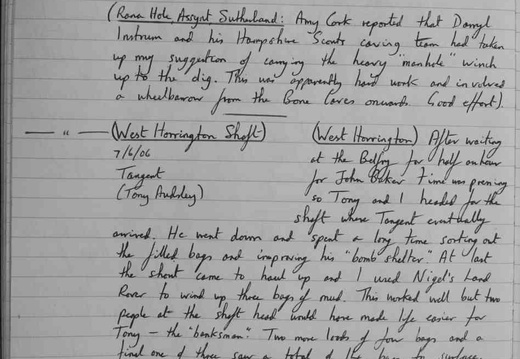 (Rana Hole, Assynt Sutherland: Amy Cork reported that Darryl
Instrum and his Hampshire Scouts caving team had taken
up my suggestion of carrying the heavy "manhole" winch
up to the dig. This was apparently hard work and involved
a wheelbarrow from the Bone Caves onwards. Good effort).
— " — (West Horrington Shaft)
7/6/06
Tangent
(Tony Audsley)
(West Horrington) After waiting
at the Belfry for half an hour
for John Baker time was pressing
so Tony and I headed for the
shaft where Tangent eventually
arrived. He went down and spent a long time sorting out
the filled bags and improving his "bomb shelter." At last
the shout came to haul up and I used Nigel's Land
Rover to wind up three bags of mud. This worked well but two
people at the shaft head would have made life easier for
Tony – the "banksman". Two more loads of four bags and a
final one of three saw a total of to surface.